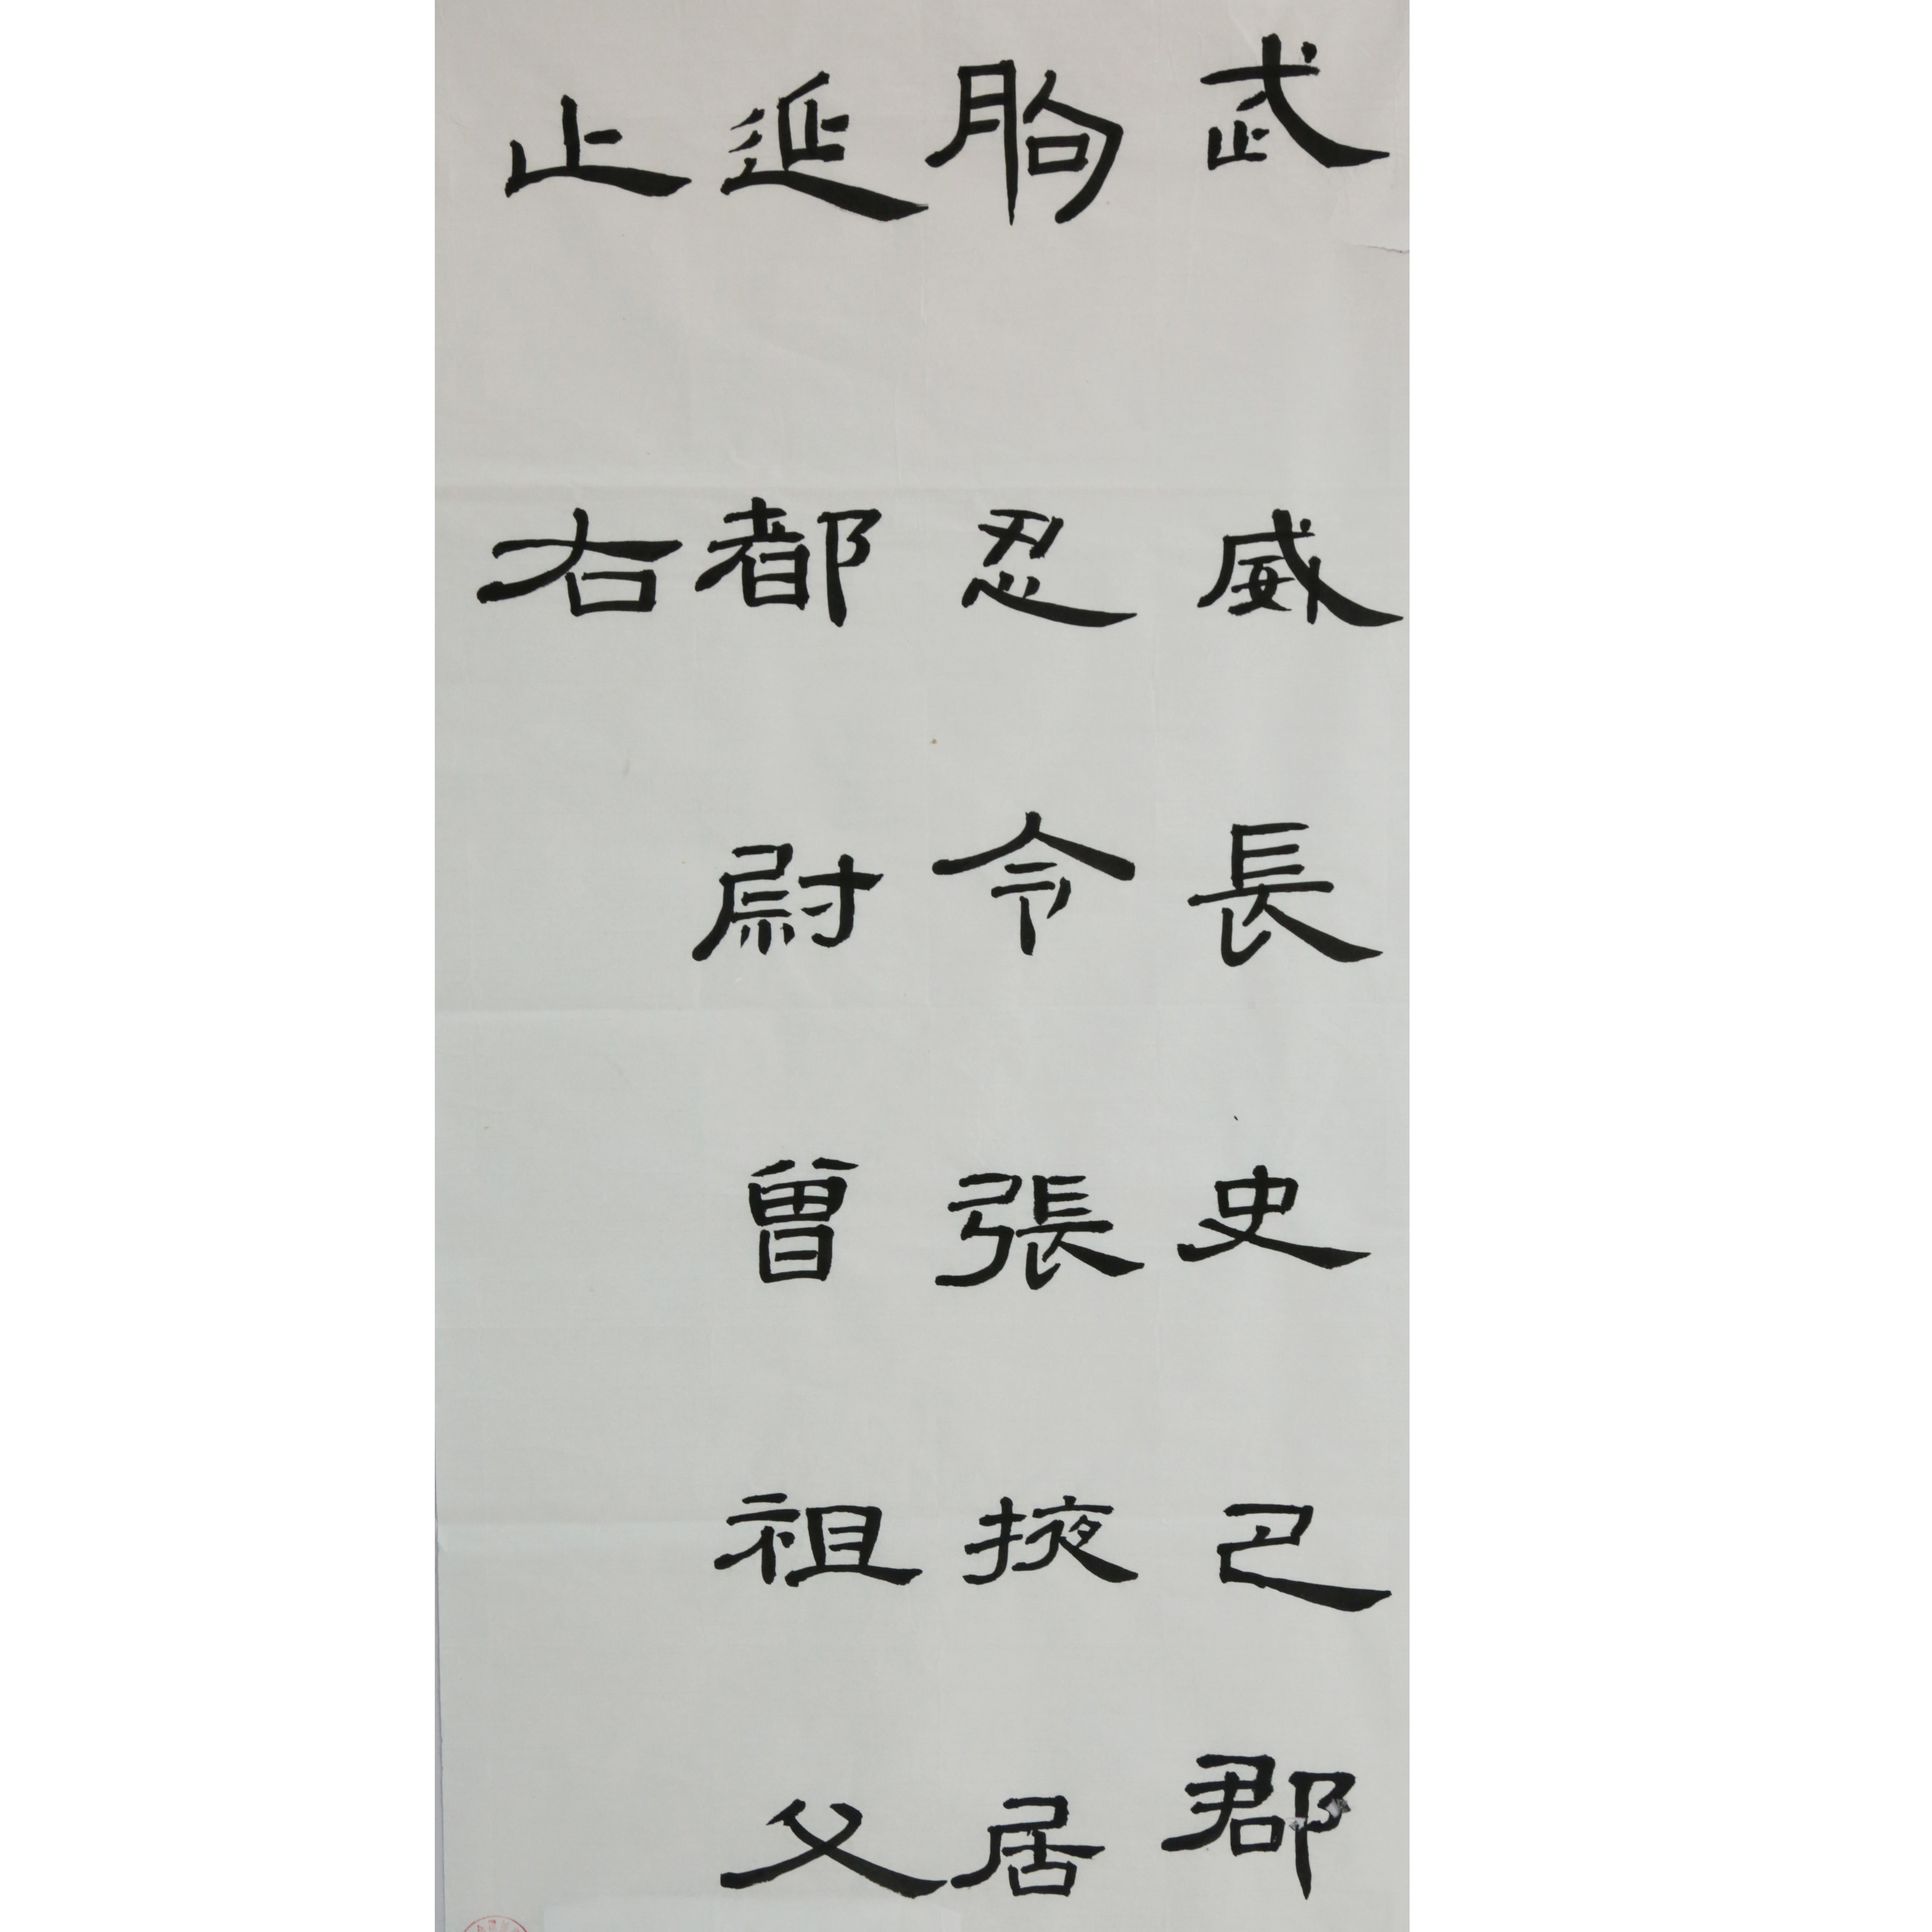 武威長史己郡
朐忍令張掖居
延都尉曾祖父
止右